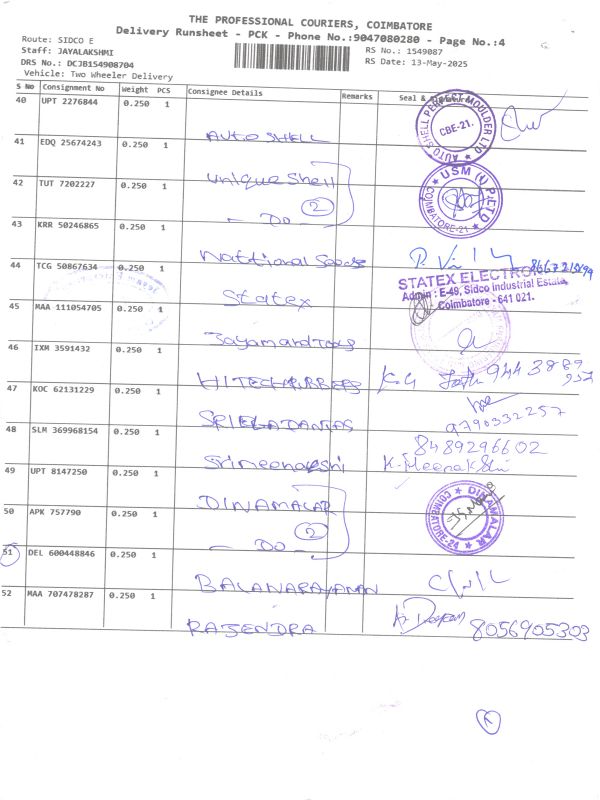 THE PROFESSIONAL COURIERS, COIMBATORE
Delivery Runsheet - PCK - Phone No.:9047080280 - Page No.:4
Route: SIDCO E
Staff: JAYALAKSHMI
RS No.: 1549087
DRS No.: DCJB154908704
RS Date: 13-May-2025
Vehicle: Two Wheeler Delivery
S No Consignment No Weight PCS Consignee Details Remarks Seal &
40 UPT 2276844 0.250 1
AUTO SHELL
AUTO SHELL PERFECT MOULDER LTD
CBE-21.
41 EDQ 25674243 0.250 1
Unique Shell
USM (I) P LTD
COIMBATORE-21
42 TUT 7202227 0.250 1
— DO — 2
43 KRR 50246865 0.250 1
National Seeds
44 TCG 50867634 0.250 1
Statex
STATEX ELECTRON
Admin : E-49, Sidco Industrial Estate
Coimbatore - 641 021.
45 MAA 111054705 0.250 1
46 IXM 3591432 0.250 1
HITECH RUBBERS 944 3889
47 KOC 62131229 0.250 1
9790332257
48 SLM 369968154 0.250 1
8489296602
Srimeenakshi K. Meenakshi
49 UPT 8147250 0.250 1
DINAMALAR
DINAMALAR
COIMBATORE-24
50 APK 757790 0.250 1
— DO — 2
51 DEL 600448846 0.250 1
BALANARAYANAN
52 MAA 707478287 0.250 1
RAJENDRA 8056905303
K